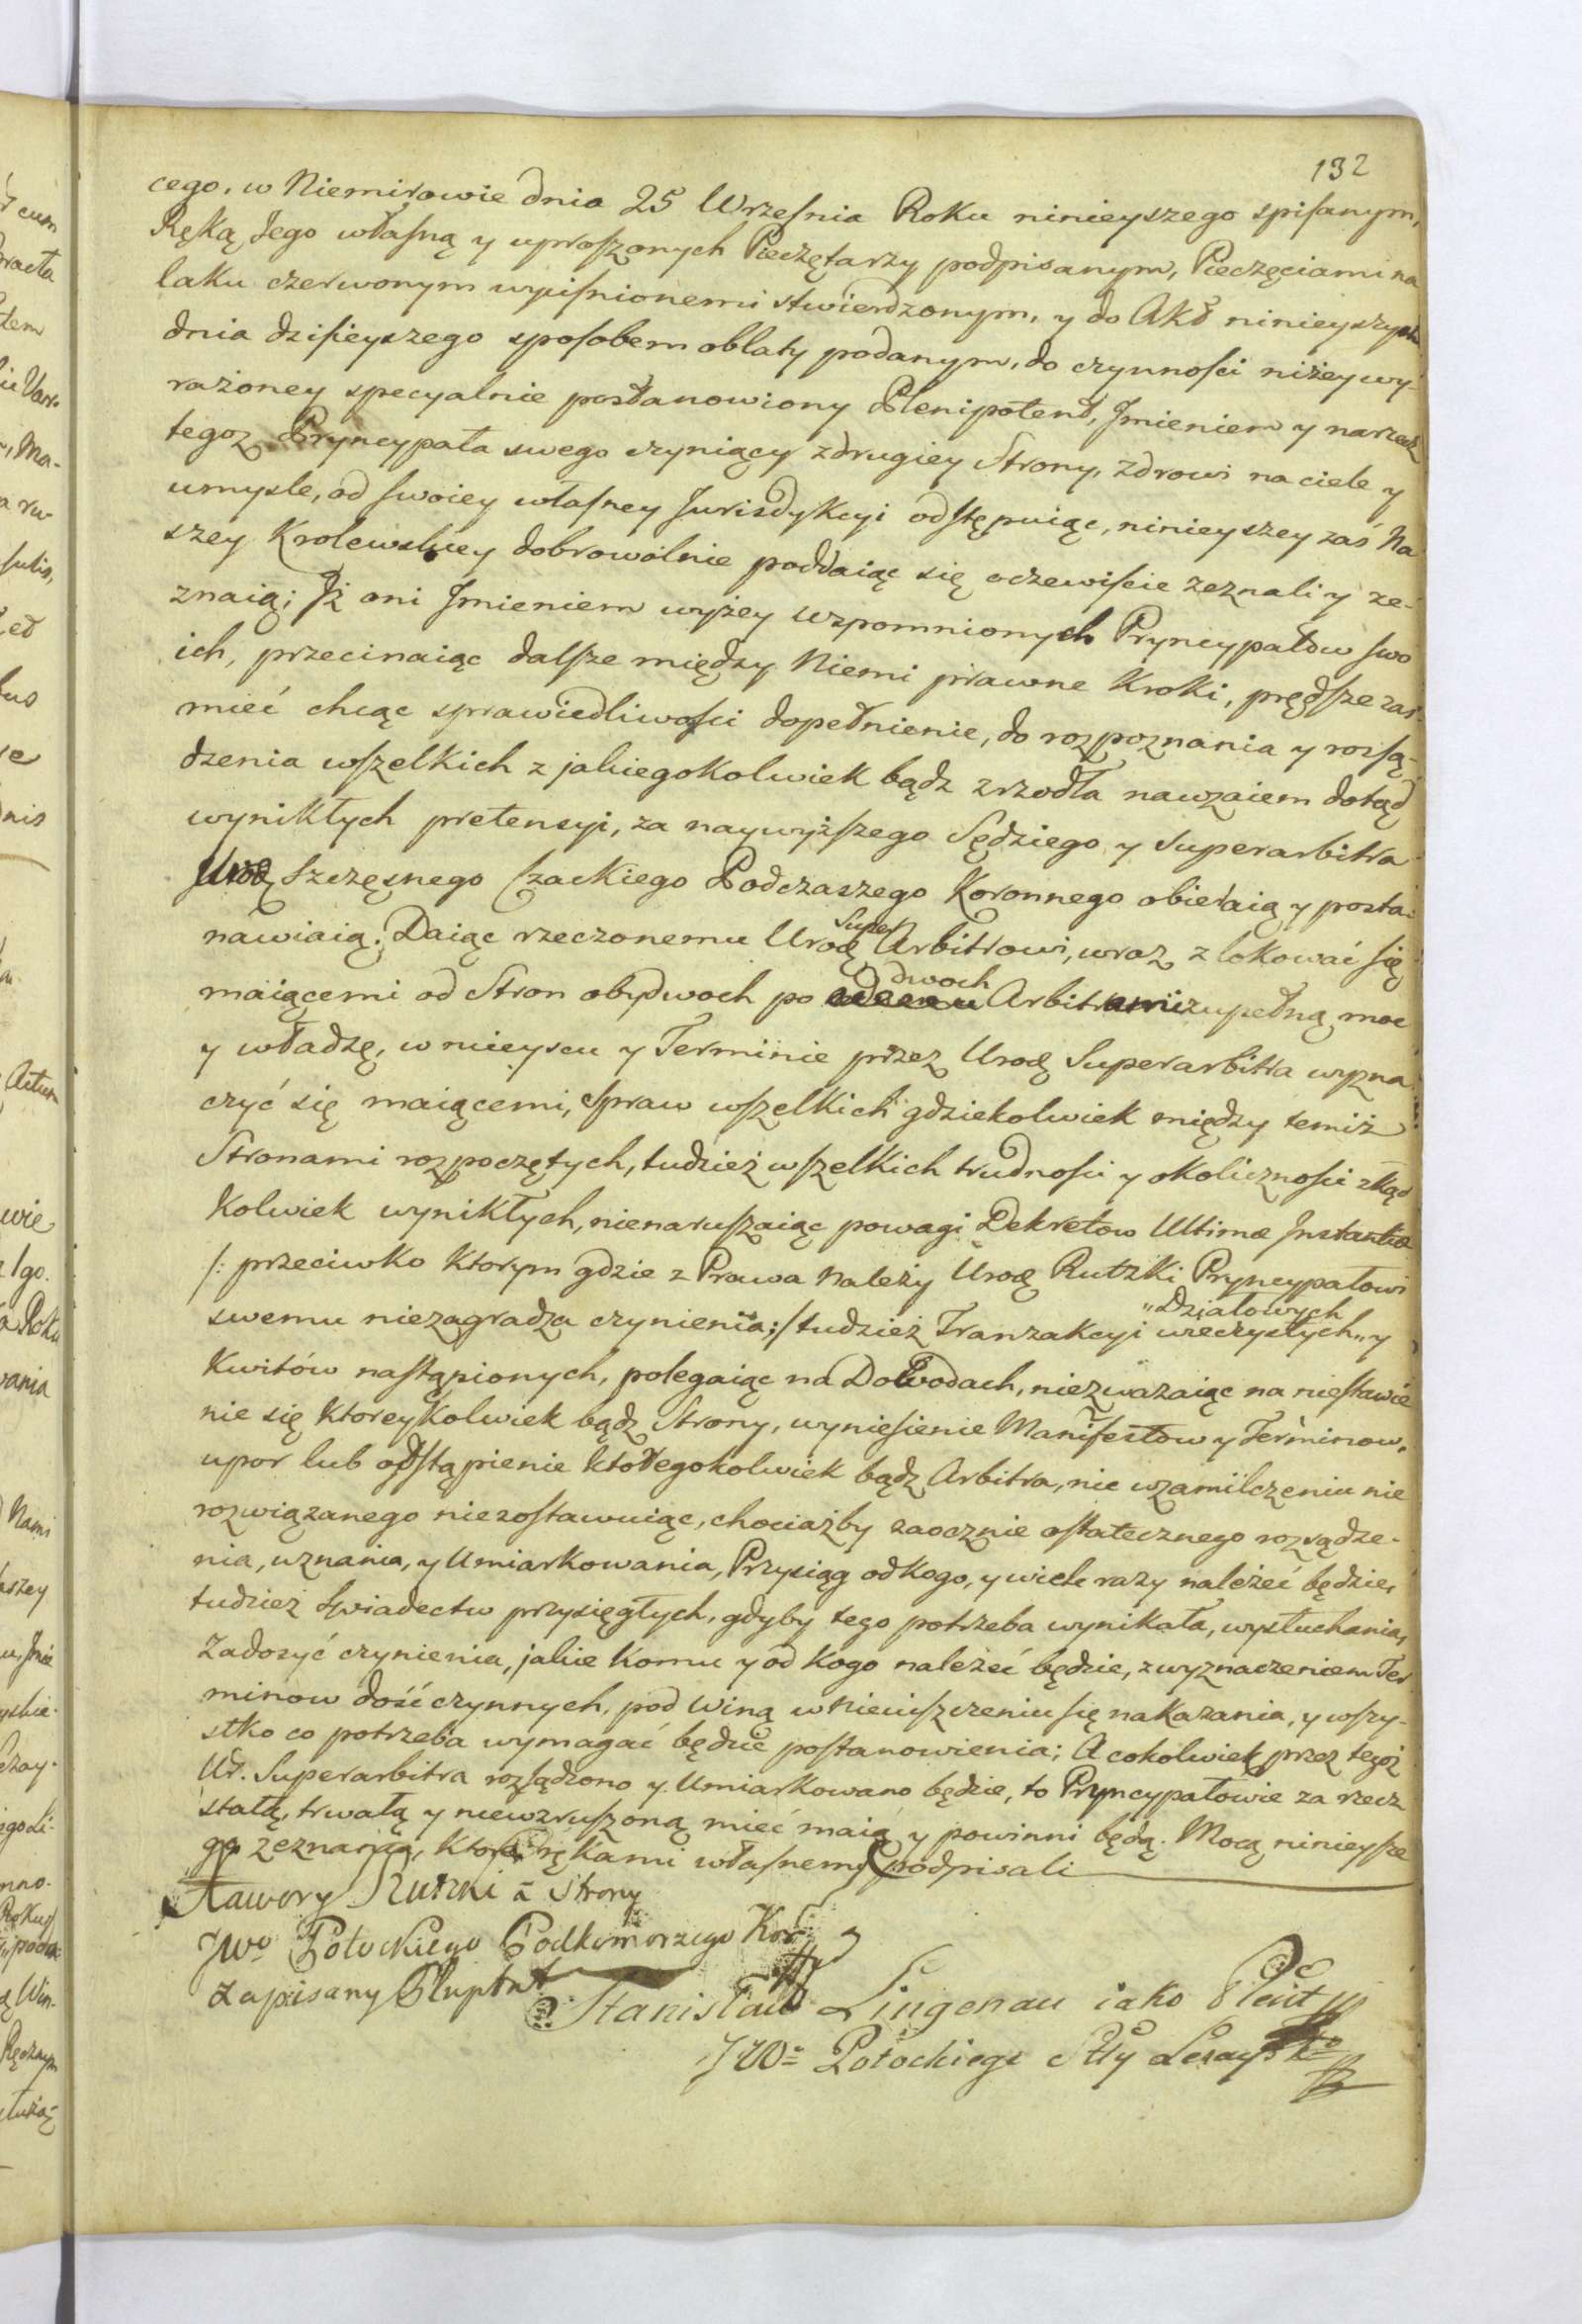 192
cego, w Niemirowie dnia 25 Wrzesnia Roku ninieyszego spisanym,
Ręką Jego własną y uproszonych Pieczętarzy podpisanym, Pieczęciami na
laku czerwonym wyisnionemi stwierdzonym, y do Akt ninieyszych
dnia dzisieyszego sposobem oblaty podanym, do czynności niżey wy-
rażoney specyalnie postanowiony Plenipotent, Jmieniem y na rzecz
tegoz Pryncypała swego czyniący z drugiey Strony, zdrowi na ciele y
umysle, od swoiey własney Jurisdykcyi odstępuiąc, ninieyszey zaś Na
szey Krolewskiey dobrowolnie poddaiąc się oczewiście zeznali y ze-
znaią; Jż oni Jmieniem wyżey wspomnionych Pryncypałow swo
ich, przecinaiąc dalsze między Niemi prawne Kroki, prędsze zaś
mieć chcąc sprawiedliwości dopełnienie, do rozpoznania y rozsą-
dzenia wszelkich z jakiegokolwiek bądz zrzodła nawzaiem dotąd
wynikłych pretensyi, za naywyższego Sędziego y Superarbitra
Urod Szczęsnego Czackiego Podczaszego Koronnego obieraią y posta-
nawiaią. Daiąc rzeczonemu Urod Super Arbitrowi, wraz z lokować się
maiącemi od Stron obydwoch po dwoch Arbitrami zupełną moc
y władzę, w mieyscu y Terminie przez Urod Superarbitra wyzna
czyć się maiącemi, Spraw wszelkich gdziekolwiek między temiż
Stronami rozpoczętych, tudzież wszelkich trudności y okoliczności zkąd
kolwiek wynikłych, nienaruszaiąc powagi Dekretow Ultimæ Jnstantiæ
/: przeciwko Ktorym gdzie z Prawa należy Urod Rutzki Pryncypałowi
swemu niezagradza czynienia :/ tudzież Tranzakcyi wieczystych „Działowych„ y
Kwitów nastąpionych, polegaiąc na Dowodach, niezważaiąc na niestawie
nie się Ktoreykolwiek bądz Strony, wyniesienie Manifestow y Terminow,
upor lub odstąpienie ktoregokolwiek bądz Arbitra, nic w zamilczeniu nie
rozwiązanego niezostawuiąc, chociażby zaocznie ostatecznego rozsądze-
nia, uznania, y Umiarkowania, Przysiąg od Kogo, y wiele razy należeć będzie,
tudzież Swiadectw przysięgłych, gdyby tego potrzeba wynikała, wysłuchania,
Zadosyć czynienia, jakie Komu y od Kogo należeć będzie, z wyznaczeniem Ter
minow dość czynnych, pod Winą w nieuiszczeniu się nakazania, y wszy-
stko co potrzeba wymagać będzie postanowienia; A cokolwiek przez tegoż
Ur. Superarbitra rozsądzono y Umiarkowano będzie, to Pryncypałowie za rzecz
stałą, trwałą y niewzruszoną mieć maią y powinni będą. Mocą ninieysze
go zeznania, Ktore rękami własnemi podpisali
Xawery Rutzki z Strony
JWo Potockiego Podkomorzego Kor
Zapisany Plnptnt
Stanisław Lingenau iako Plent
JWo Potockiego Stty Leżaysko